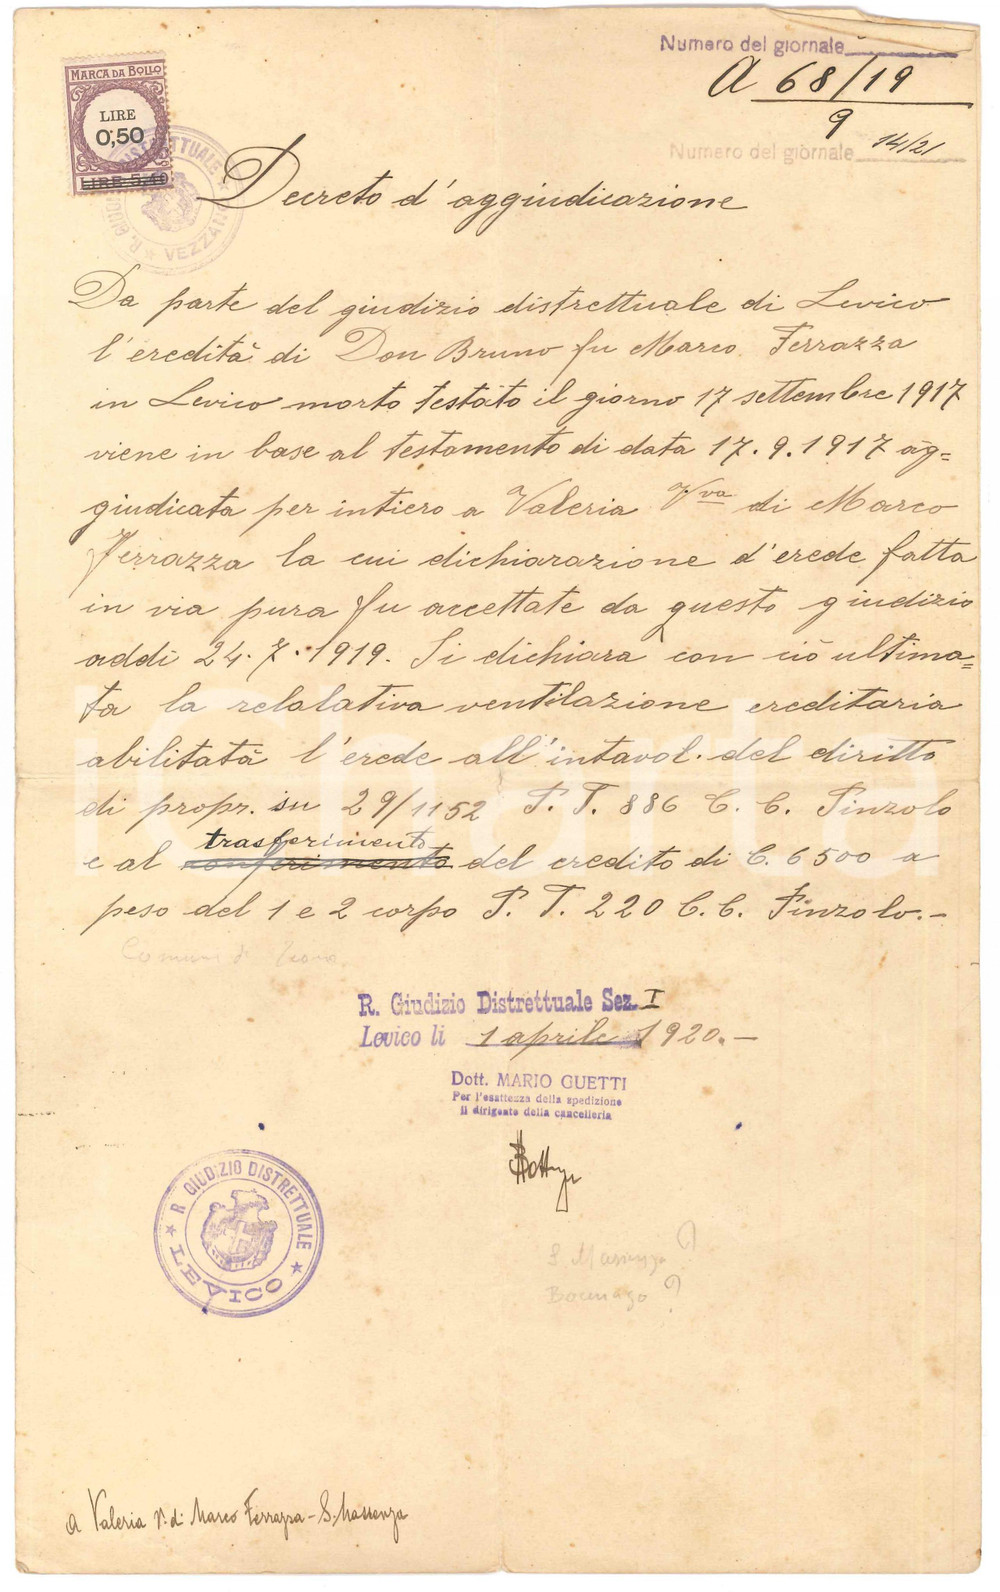 Numero del giornale
A 68/19
9
Numero del giornale 14/21
MARCA DA BOLLO
LIRE
0,50
LIRE 5,40
Decreto d'aggiudicazione
Da parte del giudizio distrettuale di Levico
l'eredità di Don Bruno fu Marco Ferrazza
in Levico morto testato il giorno 17 settembre 1917
viene in base al testamento di data 17.9.1917 ag=
giudicata per intiero a Valeria Vva di Marco
Ferrazza la cui dichiarazione d'erede fatta
in via pura fu accettate da questo giudizio
addì 24.7.1919. Si dichiara con ciò ultima=
ta la relalativa ventilazione ereditaria
abilitatà l'erede all'intavol. del diritto
di propr. su 29/1152 P.T. 886 C.C. Pinzolo
trasferimento
e al conferimento del credito di C. 6500 a
peso del 1 e 2 corpo P.T. 220 C.C. Pinzolo.-
Comune di
R. Giudizio Distrettuale Sez. I
Levico li 1 aprile 1920.-
Dott. MARIO GUETTI
Per l'esattezza della spedizione
il dirigente della cancelleria
R. GIUDIZIO DISTRETTUALE
LEVICO
S. Massenza ?
?
a Valeria V. di Marco Ferrazza - S. Massenza